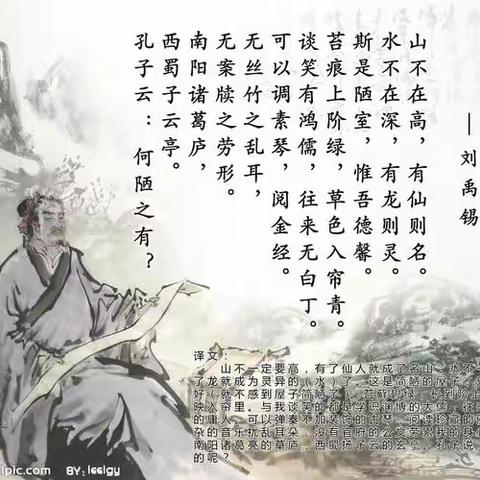 山不在高，有仙则名。
水不在深，有龙则灵。
斯是陋室，惟吾德馨。
苔痕上阶绿，草色入帘青。
谈笑有鸿儒，往来无白丁。
可以调素琴，阅金经。
无丝竹之乱耳，
无案牍之劳形。
南阳诸葛庐，
西蜀子云亭。
孔子云：何陋之有？
—刘禹锡
译文：
山不一定要高，有了仙人就成了名山；水不
了龙就成为灵异的（水）了。这是简陋的屋子，
好（就不感到屋子简陋了）。
映入帘里。与我谈笑的都是学识渊博的大儒，
的庸人。可以弹奏不加装饰的古琴，阅读珍藏的
杂的音乐扰乱耳朵，没有官府的公文劳累我的身
南阳诸葛亮的草庐，西蜀扬子云的玄亭。孔子说
的呢？
lipic.com
BY:leelgy